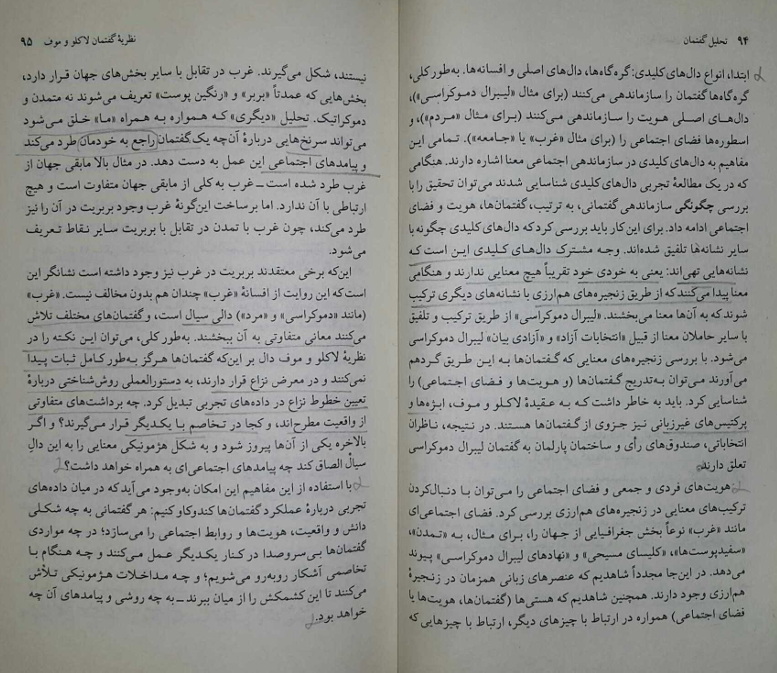 ۹۴ تحلیل گفتمان
ابتدا، انواع دال‌های کلیدی: گره‌گاه‌ها، دال‌های اصلی و افسانه‌ها. به‌طور کلی،
گره‌گاه‌ها گفتمان را سازماندهی می‌کنند (برای مثال «لیبرال دموکراسی»)،
دال‌های اصلی هویت را سازماندهی می‌کنند (برای مثال «مردم»)، و
اسطوره‌ها فضای اجتماعی را (برای مثال «غرب» یا «جامعه»). تمامی این
مفاهیم به دال‌های کلیدی در سازماندهی اجتماعی معنا اشاره دارند. هنگامی
که در یک مطالعهٔ تجربی دال‌های کلیدی شناسایی شدند می‌توان تحقیق را با
بررسی چگونگی سازماندهی گفتمانی، به ترتیب، گفتمان‌ها، هویت و فضای
اجتماعی ادامه داد. برای این کار باید بررسی کرد که دال‌های کلیدی چگونه با
سایر نشانه‌ها تلفیق شده‌اند. وجه مشترک دال‌های کلیدی این است که
نشانه‌هایی تهی‌اند: یعنی به خودی خود تقریباً هیچ معنایی ندارند و هنگامی
معنا پیدا می‌کنند که از طریق زنجیره‌های هم‌ارزی با نشانه‌های دیگری ترکیب
شوند که به آن‌ها معنا می‌بخشند. «لیبرال دموکراسی» از طریق ترکیب و تلفیق
با سایر حاملان معنا از قبیل «انتخابات آزاد» و «آزادی بیان» لیبرال دموکراسی
می‌شود. با بررسی زنجیره‌های معنایی که گفتمان‌ها به این طریق گردهم
می‌آورند می‌توان به‌تدریج گفتمان‌ها (و هویت‌ها و فضای اجتماعی) را
شناسایی کرد. باید به خاطر داشت که به عقیدهٔ لاکلو و موف، ابژه‌ها و
پرکتیس‌های غیرزبانی نیز جزوی از گفتمان‌ها هستند. در نتیجه، ناظران
انتخاباتی، صندوق‌های رأی و ساختمان پارلمان به گفتمان لیبرال دموکراسی
تعلق دارند.
هویت‌های فردی و جمعی و فضای اجتماعی را می‌توان با دنبال‌کردن
ترکیب‌های معنایی در زنجیره‌های هم‌ارزی بررسی کرد. فضای اجتماعی‌ای
مانند «غرب» نوعاً بخش جغرافیایی از جهان را، برای مثال، به «تمدن»،
«سفیدپوست‌ها»، «کلیسای مسیحی» و «نهادهای لیبرال دموکراسی» پیوند
می‌دهد. در این‌جا مجدداً شاهدیم که عنصرهای زبانی همزمان در زنجیرهٔ
هم‌ارزی وجود دارند. همچنین شاهدیم که هستی‌ها (گفتمان‌ها، هویت‌ها یا
فضای اجتماعی) همواره در ارتباط با چیزهای دیگر، ارتباط با چیزهایی که
نظریهٔ گفتمان لاکلو و موف ۹۵
نیستند، شکل می‌گیرند. غرب در تقابل با سایر بخش‌های جهان قرار دارد،
بخش‌هایی که عمدتاً «بربر» و «رنگین پوست» تعریف می‌شوند نه متمدن و
دموکراتیک. تحلیل «دیگری» که همواره به همراه «ما» خلق می‌شود
می‌تواند سرنخ‌هایی دربارهٔ آن‌چه یک گفتمان راجع به خودمان طرد می‌کند
و پیامدهای اجتماعی این عمل به دست دهد. در مثال بالا مابقی جهان از
غرب طرد شده است ــ غرب به کلی از مابقی جهان متفاوت است و هیچ
ارتباطی با آن ندارد. اما برساخت این‌گونهٔ غرب وجود بربریت در آن را نیز
طرد می‌کند، چون غرب با تمدن در تقابل با بربریت سایر نقاط تعریف
می‌شود.
این‌که برخی معتقدند بربریت در غرب نیز وجود داشته است نشانگر این
است که این روایت از افسانهٔ «غرب» چندان هم بدون مخالف نیست. «غرب»
(مانند «دموکراسی» و «مرد») دالی سیال است، و گفتمان‌های مختلف تلاش
می‌کنند معانی متفاوتی به آن ببخشند. به‌طور کلی، می‌توان این نکته را در
نظریهٔ لاکلو و موف دال بر این‌که گفتمان‌ها هرگز به‌طور کامل ثبات پیدا
نمی‌کنند و در معرض نزاع قرار دارند، به دستورالعملی روش‌شناختی دربارهٔ
تعیین خطوط نزاع در داده‌های تجربی تبدیل کرد. چه برداشت‌های متفاوتی
از واقعیت مطرح‌اند، و کجا در تخاصم با یکدیگر قرار می‌گیرند؟ و اگر
بالاخره یکی از آن‌ها پیروز شود و به شکل هژمونیکی معنایی را به این دالِ
سیال الصاق کند چه پیامدهای اجتماعی‌ای به همراه خواهد داشت؟
با استفاده از این مفاهیم این امکان به‌وجود می‌آید که در میان داده‌های
تجربی دربارهٔ عملکرد گفتمان‌ها کندوکاو کنیم: هر گفتمانی به چه شکلی
دانش و واقعیت، هویت‌ها و روابط اجتماعی را می‌سازد؛ در چه مواردی
گفتمان‌ها بی‌سروصدا در کنار یکدیگر عمل می‌کنند و چه هنگام با
تخاصمی آشکار روبه‌رو می‌شویم؛ و چه مداخلات هژمونیکی تلاش
می‌کنند تا این کشمکش را از میان ببرند ــ به چه روشی و پیامدهای آن چه
خواهد بود.